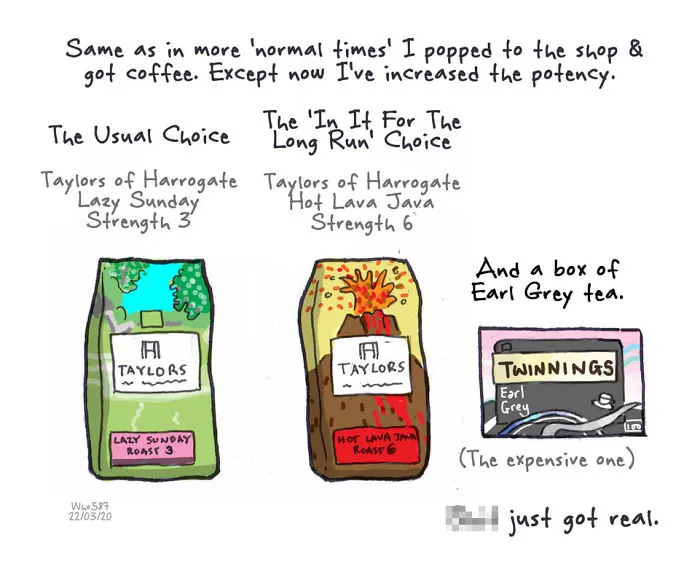 Same as in more 'normal times' I popped to the shop &
got coffee. Except now I've increased the potency.
The Usual Choice
Taylors of Harrogate
Lazy Sunday
Strength 3
The 'In It For The
Long Run' Choice
Taylors of Harrogate
Hot Lava Java
Strength 6
TAYLORS
LAZY SUNDAY
ROAST 3
TAYLORS
HOT LAVA JAVA
ROAST 6
And a box of
Earl Grey tea.
TWINNINGS
Earl
Grey
100
(The expensive one)
just got real.
Who587
22/03/20